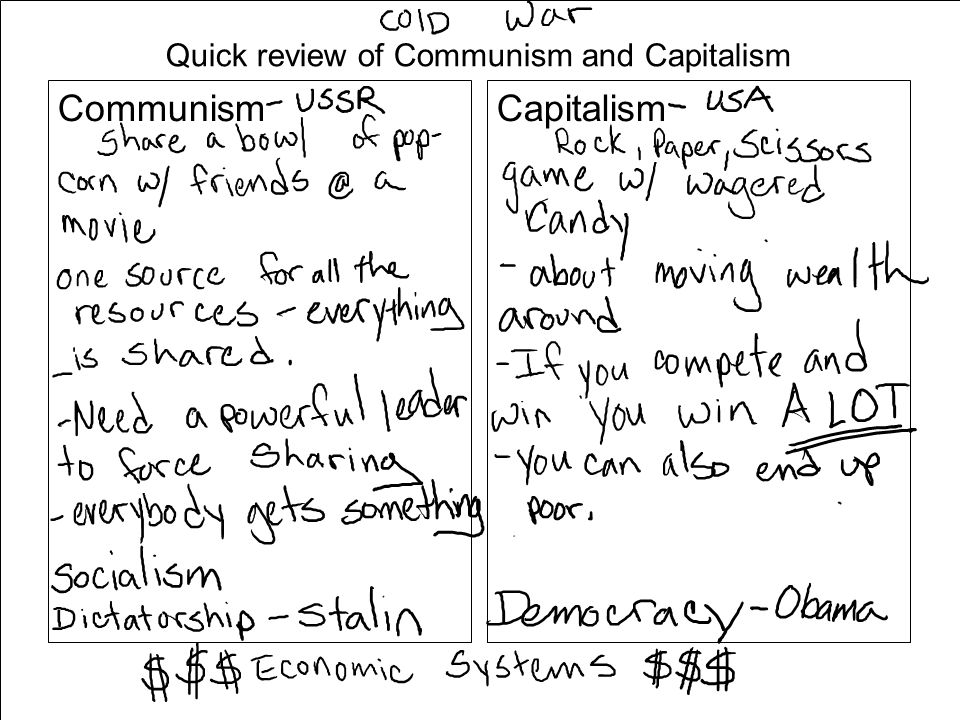 COLD War
Quick review of Communism and Capitalism
Communism- USSR
share a bowl of pop-
corn w/ friends @ a
movie
one source for all the
resources - everything
is shared.
-Need a powerful leader
to force sharing
-everybody gets something
Socialism
Dictatorship - Stalin
Capitalism- USA
Rock, Paper, Scissors
game w/ wagered
Candy
- about moving wealth
around
-If you compete and
win you win A LOT
-You can also end up
poor.
Democracy - Obama
$$$ Economic Systems $$$